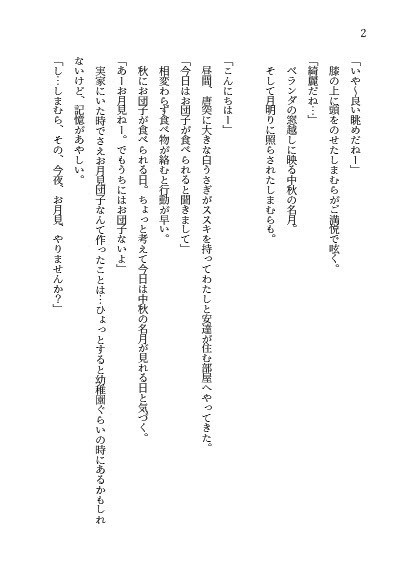 2
「いや～良い眺めだねー」
膝の上に頭をのせたしまむらがご満悦で呟く。
「綺麗だね…」
ベランダの窓越しに映る中秋の名月。
そして月明りに照らされたしまむらも。
「こんにちはー」
昼間、唐突に大きな白うさぎがススキを持ってわたしと安達が住む部屋へやってきた。
「今日はお団子が食べられると聞きまして」
相変わらず食べ物が絡むと行動が早い。
秋にお団子が食べられる日。ちょっと考えて今日は中秋の名月が見れる日と気づく。
「あーお月見ねー。でもうちにはお団子ないよ」
実家にいた時でさえお月見団子なんて作ったことは…ひょっとすると幼稚園ぐらいの時にあるかもしれ
ないけど、記憶があやしい。
「し…しまむら、その、今夜、お月見、やりませんか？」